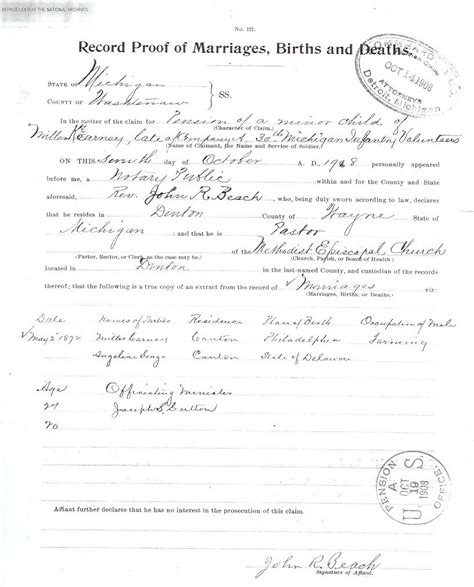 REPRODUCED AT THE NATIONAL ARCHIVES
No. 121.
Record Proof of Marriages, Births and Deaths.
OCT 14 1908
ATTORNEYS
Detroit, Michigan
STATE OF Michigan
SS.
COUNTY OF Washtenaw
In the matter of the claim for Pension of a minor child of
(Character of Claim.)
Carney, late of Company Michigan Infantry Volunteers
(Name of Claimant, the Name and Service of Soldier.)
ON THIS day of October A. D. 1908 personally appeared
before me, a Notary Public within and for the County and State
aforesaid, Rev. John R. Beach, who, being duly sworn according to law, declares
that he resides in Denton County of Wayne State of
Michigan and that he is Pastor
of the Methodist Episcopal Church
(Pastor, Rector, or Clerk, as the case may be.) (Church, Parish, or Board of Health)
located in Denton in the last-named County, and custodian of the record
thereof; that the following is a true copy of an extract from the record of Marriages viz:
(Marriages, Births, or Deaths.)
Date Names of Parties Residence Place of Birth Occupation of Male
May 2 1872 Carney Canton Philadelphia Farming
Angeline Canton State of Delaware
Age Officiating Minister
27 Joseph S. Sutton
20
PENSION OFFICE
U. S.
OCT 19 1908
Affiant further declares that he has no interest in the prosecution of this claim.
John R. Beach
Signature of Affiant.